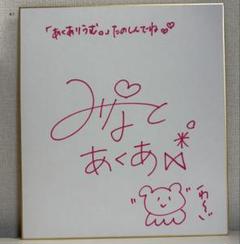 「あくありうむ。」たのしんでね♡
みなと
あくあ
わ〜い